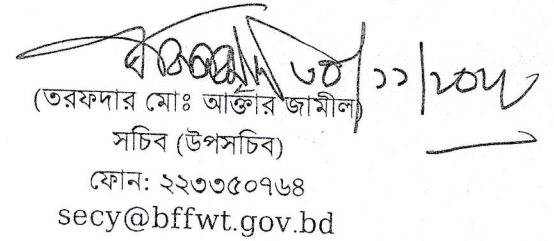 ৩০/১১/২০২৫
(তরফদার মোঃ আক্তার জামীল)
সচিব (উপসচিব)
ফোন: ২২৩৩৫০৭৬৪
secy@bffwt.gov.bd